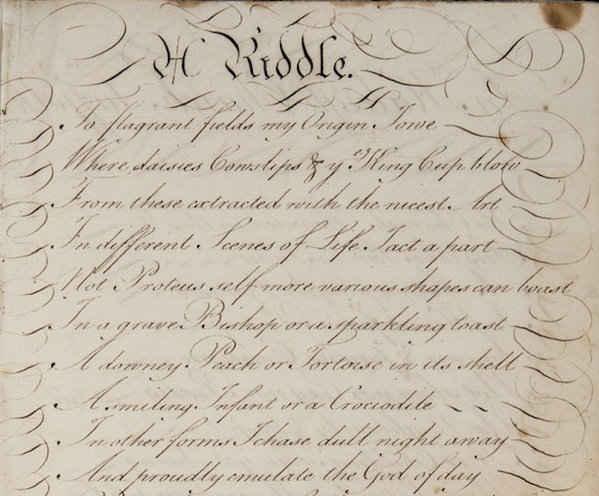 A Riddle.
To flagrant fields my Origin I owe
Where daisies Cowslips & yᵉ King Cup blow
From these extracted with the nicest Art
In different Scenes of Life I act a part
Not Proteus self more various shapes can boast
In a grave Bishop or a sparkling toast
A downey Peach or Tortoise in its shell
A smiling Infant or a Crocodile
In other forms I chase dull night away
And proudly emulate the God of day